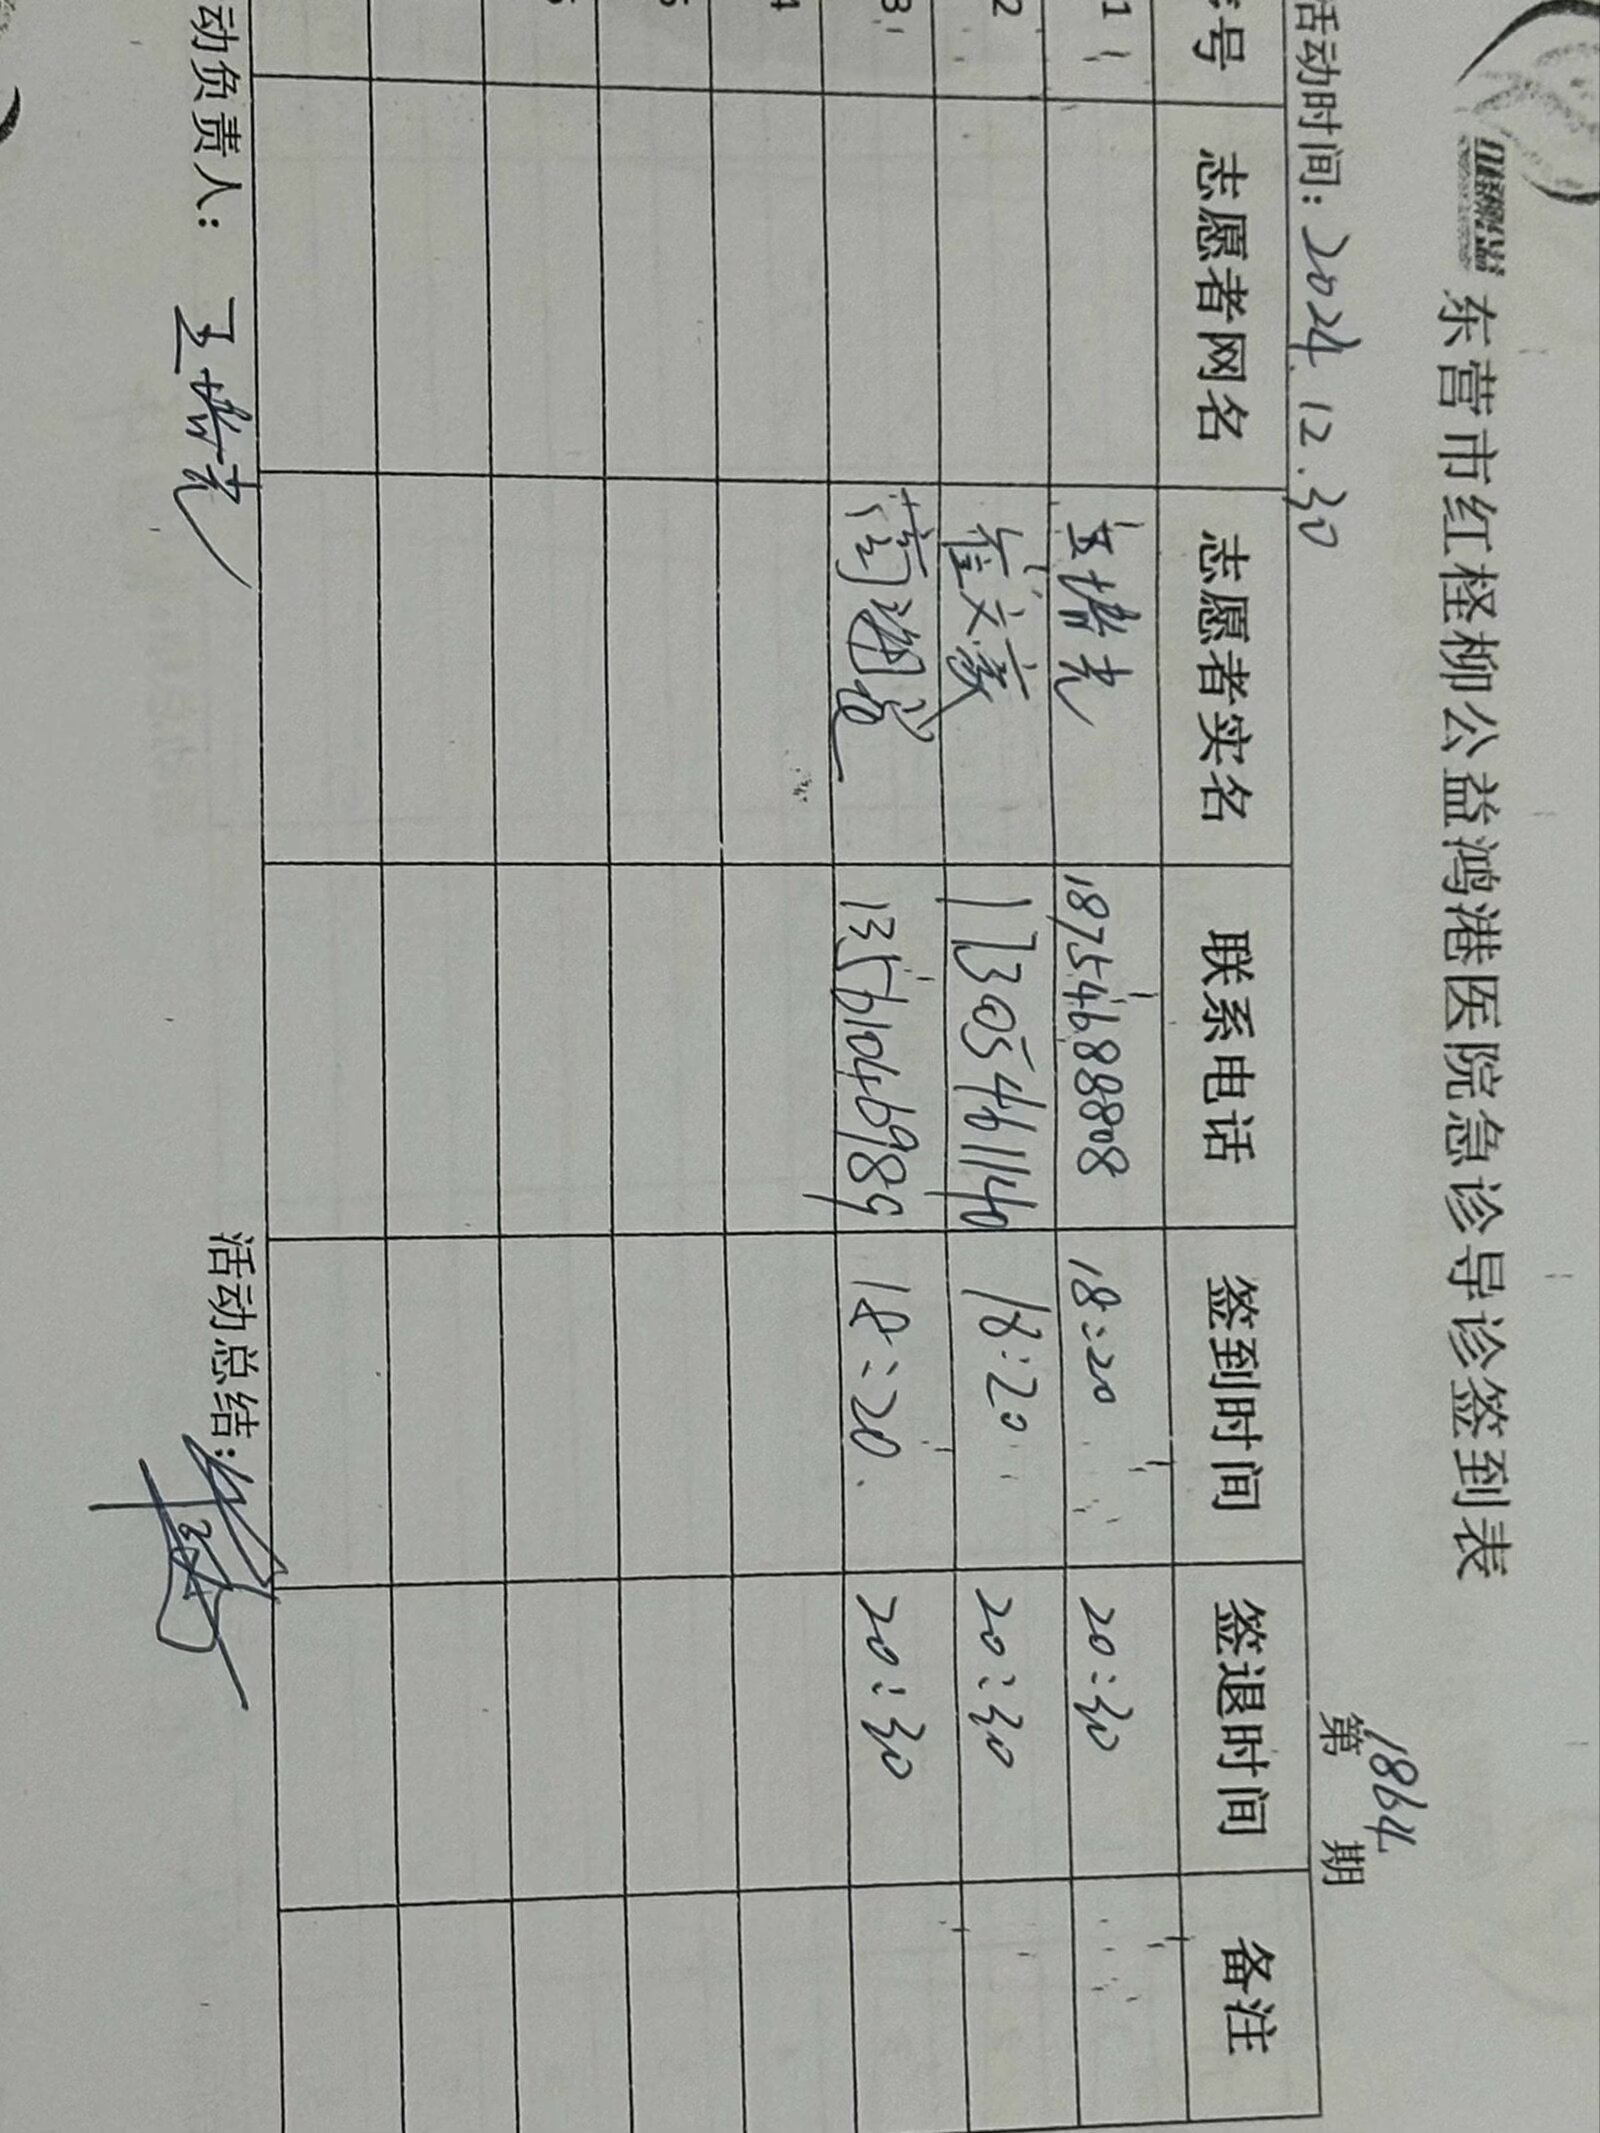 红柽柳公益
东营市红柽柳公益鸿港医院急诊导诊签到表
活动时间：2024.12.30 第1864期
号 志愿者网名 志愿者实名 联系电话 签到时间 签退时间 备注
1 18754688808 18:20 20:30
2 崔文豪 17305461140 18:20 20:30
3 13561046989 18:20. 20:30
4
5
动负责人： 活动总结：